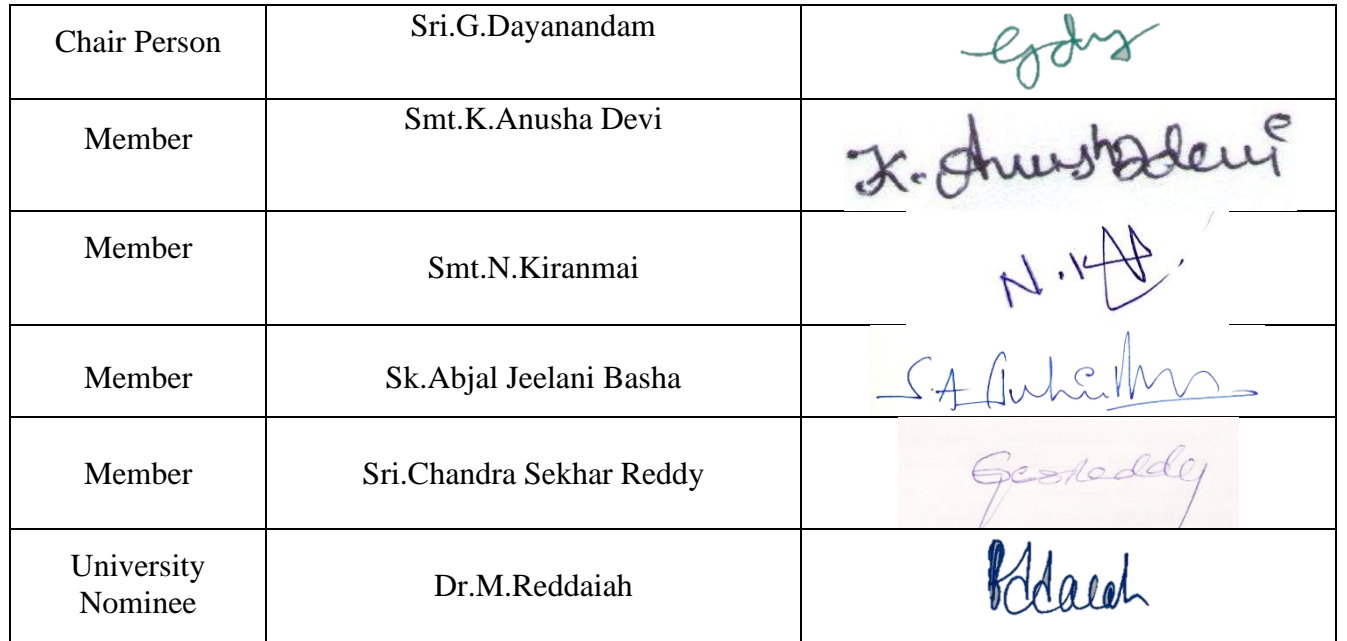 Chair Person
Sri.G.Dayanandam
Gdy
Member
Smt.K.Anusha Devi
K. Anusha Devi
Member
Smt.N.Kiranmai
Member
Sk.Abjal Jeelani Basha
S.A
Member
Sri.Chandra Sekhar Reddy
University
Nominee
Dr.M.Reddaiah